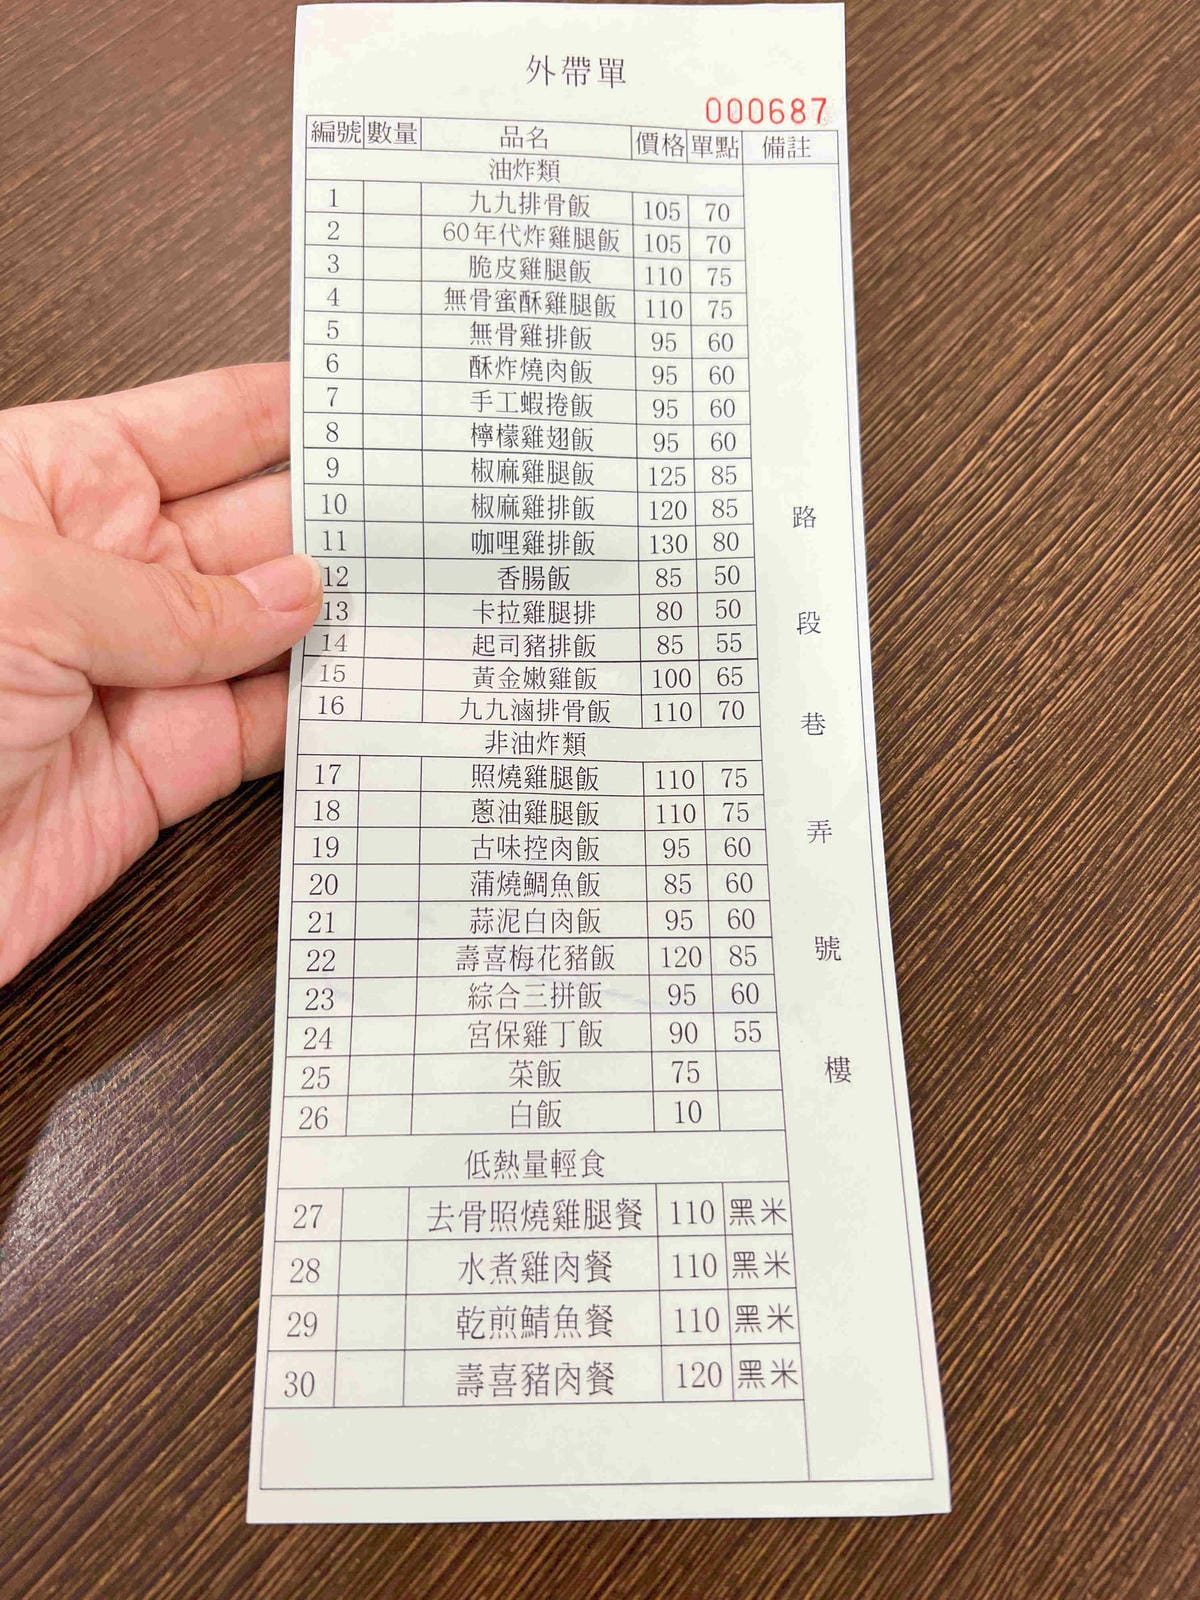 外帶單
000687
編號 數量 品名 價格 單點 備註
油炸類
1 九九排骨飯 105 70
2 60年代炸雞腿飯 105 70
3 脆皮雞腿飯 110 75
4 無骨蜜酥雞腿飯 110 75
5 無骨雞排飯 95 60
6 酥炸燒肉飯 95 60
7 手工蝦捲飯 95 60
8 檸檬雞翅飯 95 60
9 椒麻雞腿飯 125 85
10 椒麻雞排飯 120 85
11 咖哩雞排飯 130 80
12 香腸飯 85 50
13 卡拉雞腿排 80 50
14 起司豬排飯 85 55
15 黃金嫩雞飯 100 65
16 九九滷排骨飯 110 70
非油炸類
17 照燒雞腿飯 110 75
18 蔥油雞腿飯 110 75
19 古味控肉飯 95 60
20 蒲燒鯛魚飯 85 60
21 蒜泥白肉飯 95 60
22 壽喜梅花豬飯 120 85
23 綜合三拼飯 95 60
24 宮保雞丁飯 90 55
25 菜飯 75
26 白飯 10
低熱量輕食
27 去骨照燒雞腿餐 110 黑米
28 水煮雞肉餐 110 黑米
29 乾煎鯖魚餐 110 黑米
30 壽喜豬肉餐 120 黑米
路段巷弄號樓